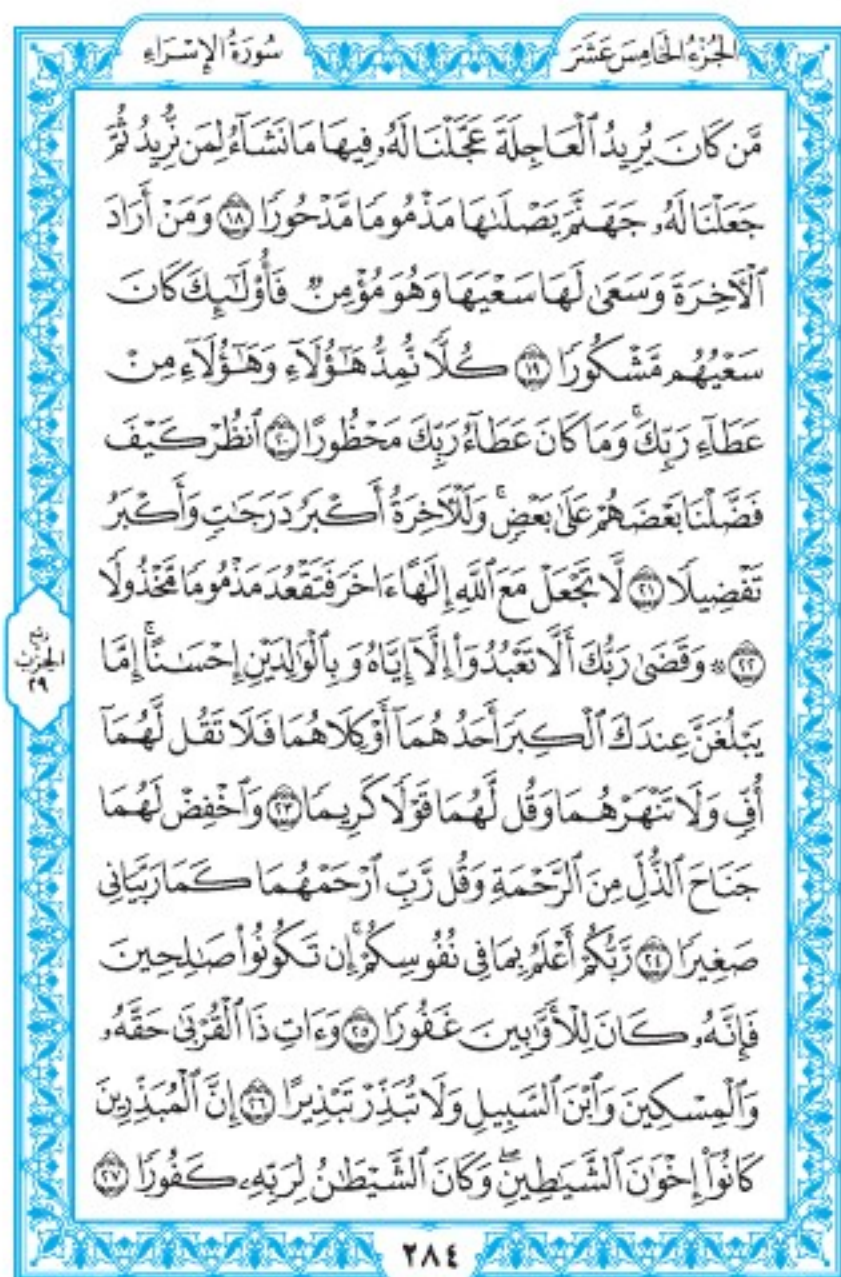 الجُزْءُ الخَامِسَ عَشَرَ
سُورَةُ الإِسْرَاءِ
مَّن كَانَ يُرِيدُ ٱلْعَاجِلَةَ عَجَّلْنَا لَهُۥ فِيهَا مَا نَشَآءُ لِمَن نُّرِيدُ ثُمَّ
جَعَلْنَا لَهُۥ جَهَنَّمَ يَصْلَىٰهَا مَذْمُومًا مَّدْحُورًا ١٨ وَمَنْ أَرَادَ
ٱلْأَخِرَةَ وَسَعَىٰ لَهَا سَعْيَهَا وَهُوَ مُؤْمِنٌ فَأُو۟لَٰٓئِكَ كَانَ
سَعْيُهُم مَّشْكُورًا ١٩ كُلًّا نُّمِدُّ هَٰٓؤُلَآءِ وَهَٰٓؤُلَآءِ مِنْ
عَطَآءِ رَبِّكَۚ وَمَا كَانَ عَطَآءُ رَبِّكَ مَحْظُورًا ٢٠ ٱنظُرْ كَيْفَ
فَضَّلْنَا بَعْضَهُمْ عَلَىٰ بَعْضٍۚ وَلَلْأَخِرَةُ أَكْبَرُ دَرَجَٰتٍ وَأَكْبَرُ
تَفْضِيلًا ٢١ لَّا تَجْعَلْ مَعَ ٱللَّهِ إِلَٰهًا ءَاخَرَ فَتَقْعُدَ مَذْمُومًا مَّخْذُولًا
٢٢ ۞ وَقَضَىٰ رَبُّكَ أَلَّا تَعْبُدُوٓا۟ إِلَّآ إِيَّاهُ وَبِٱلْوَٰلِدَيْنِ إِحْسَٰنًاۚ إِمَّا
يَبْلُغَنَّ عِندَكَ ٱلْكِبَرَ أَحَدُهُمَآ أَوْ كِلَاهُمَا فَلَا تَقُل لَّهُمَآ
أُفٍّ وَلَا تَنْهَرْهُمَا وَقُل لَّهُمَا قَوْلًا كَرِيمًا ٢٣ وَٱخْفِضْ لَهُمَا
جَنَاحَ ٱلذُّلِّ مِنَ ٱلرَّحْمَةِ وَقُل رَّبِّ ٱرْحَمْهُمَا كَمَا رَبَّيَانِى
صَغِيرًا ٢٤ رَّبُّكُمْ أَعْلَمُ بِمَا فِى نُفُوسِكُمْۚ إِن تَكُونُوا۟ صَٰلِحِينَ
فَإِنَّهُۥ كَانَ لِلْأَوَّٰبِينَ غَفُورًا ٢٥ وَءَاتِ ذَا ٱلْقُرْبَىٰ حَقَّهُۥ
وَٱلْمِسْكِينَ وَٱبْنَ ٱلسَّبِيلِ وَلَا تُبَذِّرْ تَبْذِيرًا ٢٦ إِنَّ ٱلْمُبَذِّرِينَ
كَانُوٓا۟ إِخْوَٰنَ ٱلشَّيَٰطِينِۖ وَكَانَ ٱلشَّيْطَٰنُ لِرَبِّهِۦ كَفُورًا ٢٧
ربع
الحزب
٢٩
٢٨٤